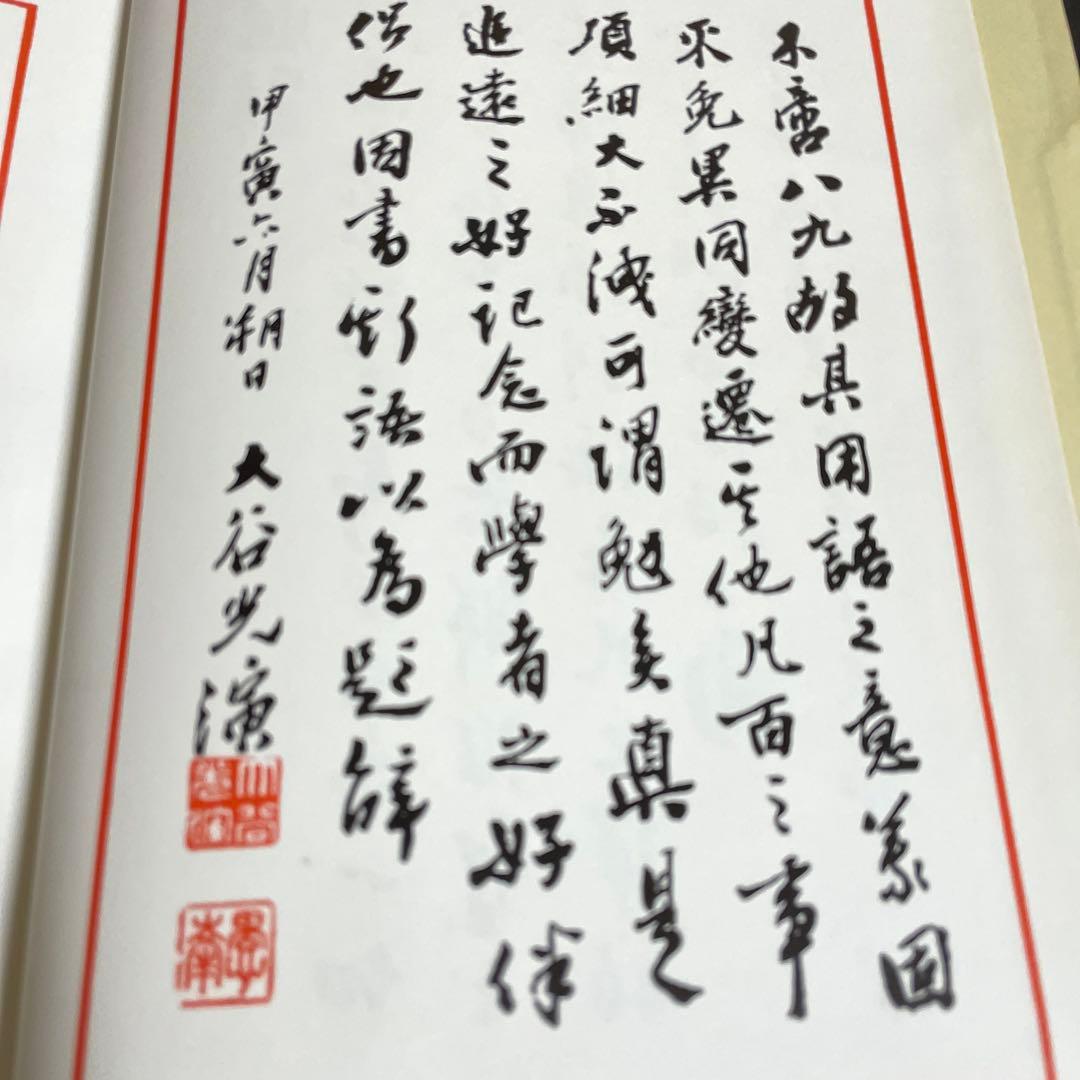 不啻八九故其用語之意義固
未免異同變遷其他凡百之事
項細大不洩可謂勉矣真是
追遠之好記念而學者之好伴
侶也因書斯語以為題辭
甲寅六月朔日 大谷光演